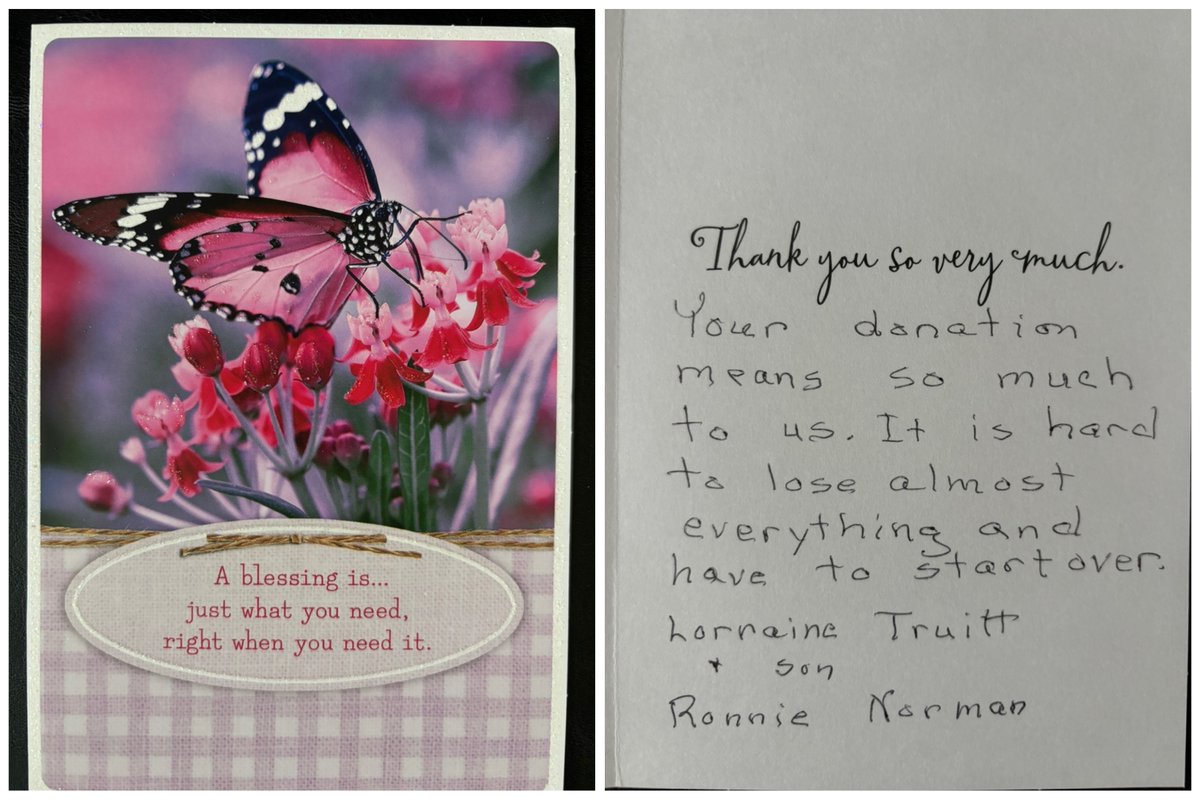 A blessing is...
just what you need,
right when you need it.
Thank you so very much.
Your donation
means so much
to us. It is hard
to lose almost
everything and
have to start over.
Lorraine Truitt
+ son
Ronnie Norman